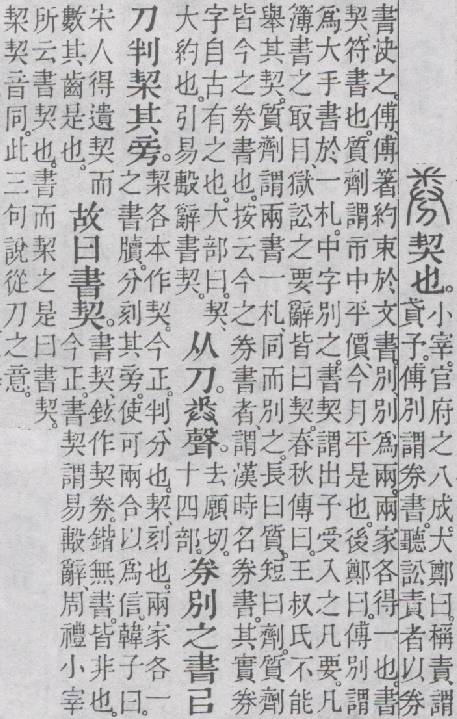 券 契也。
小宰。官府之八成。大鄭曰。稱責、謂
貣予。傅別、謂券書。聽訟責者以券
書決之。傅、傅著約束於文書。別、別爲兩。兩家各得一也。書
契、符書也。質劑、謂市中平價、今月平是也。後鄭曰。傅別、謂
爲大手書於一札。中字別之。書契、謂出予受入之凡要。凡
簿書之取目、獄訟之要辭。皆曰契。春秋傳曰。王叔氏不能
舉其契。質劑、謂兩書一札、同而別之。長曰質。短曰劑。質劑
皆今之券書也。按云今之券書者、謂漢時名券書。其實券
字自古有之也。大部曰。契、
大約也。引易毄辭書契。
从刀。𢍏聲。
去願切。
十四部。
券別之書㠯
刀判栔其旁。
栔各本作契。今正。判、分也。栔、刻也。兩家各一
之書牘。分刻其旁。使可兩合以爲信。韓子曰。
宋人得遺契而
數其齒是也。
故曰書契。
書契、鉉作契券。鍇無書。皆非也。
今正。書契、謂易毄辭、周禮小宰
所云書契也。書而栔之。是曰書契。
栔契音同。此三句說從刀之意。